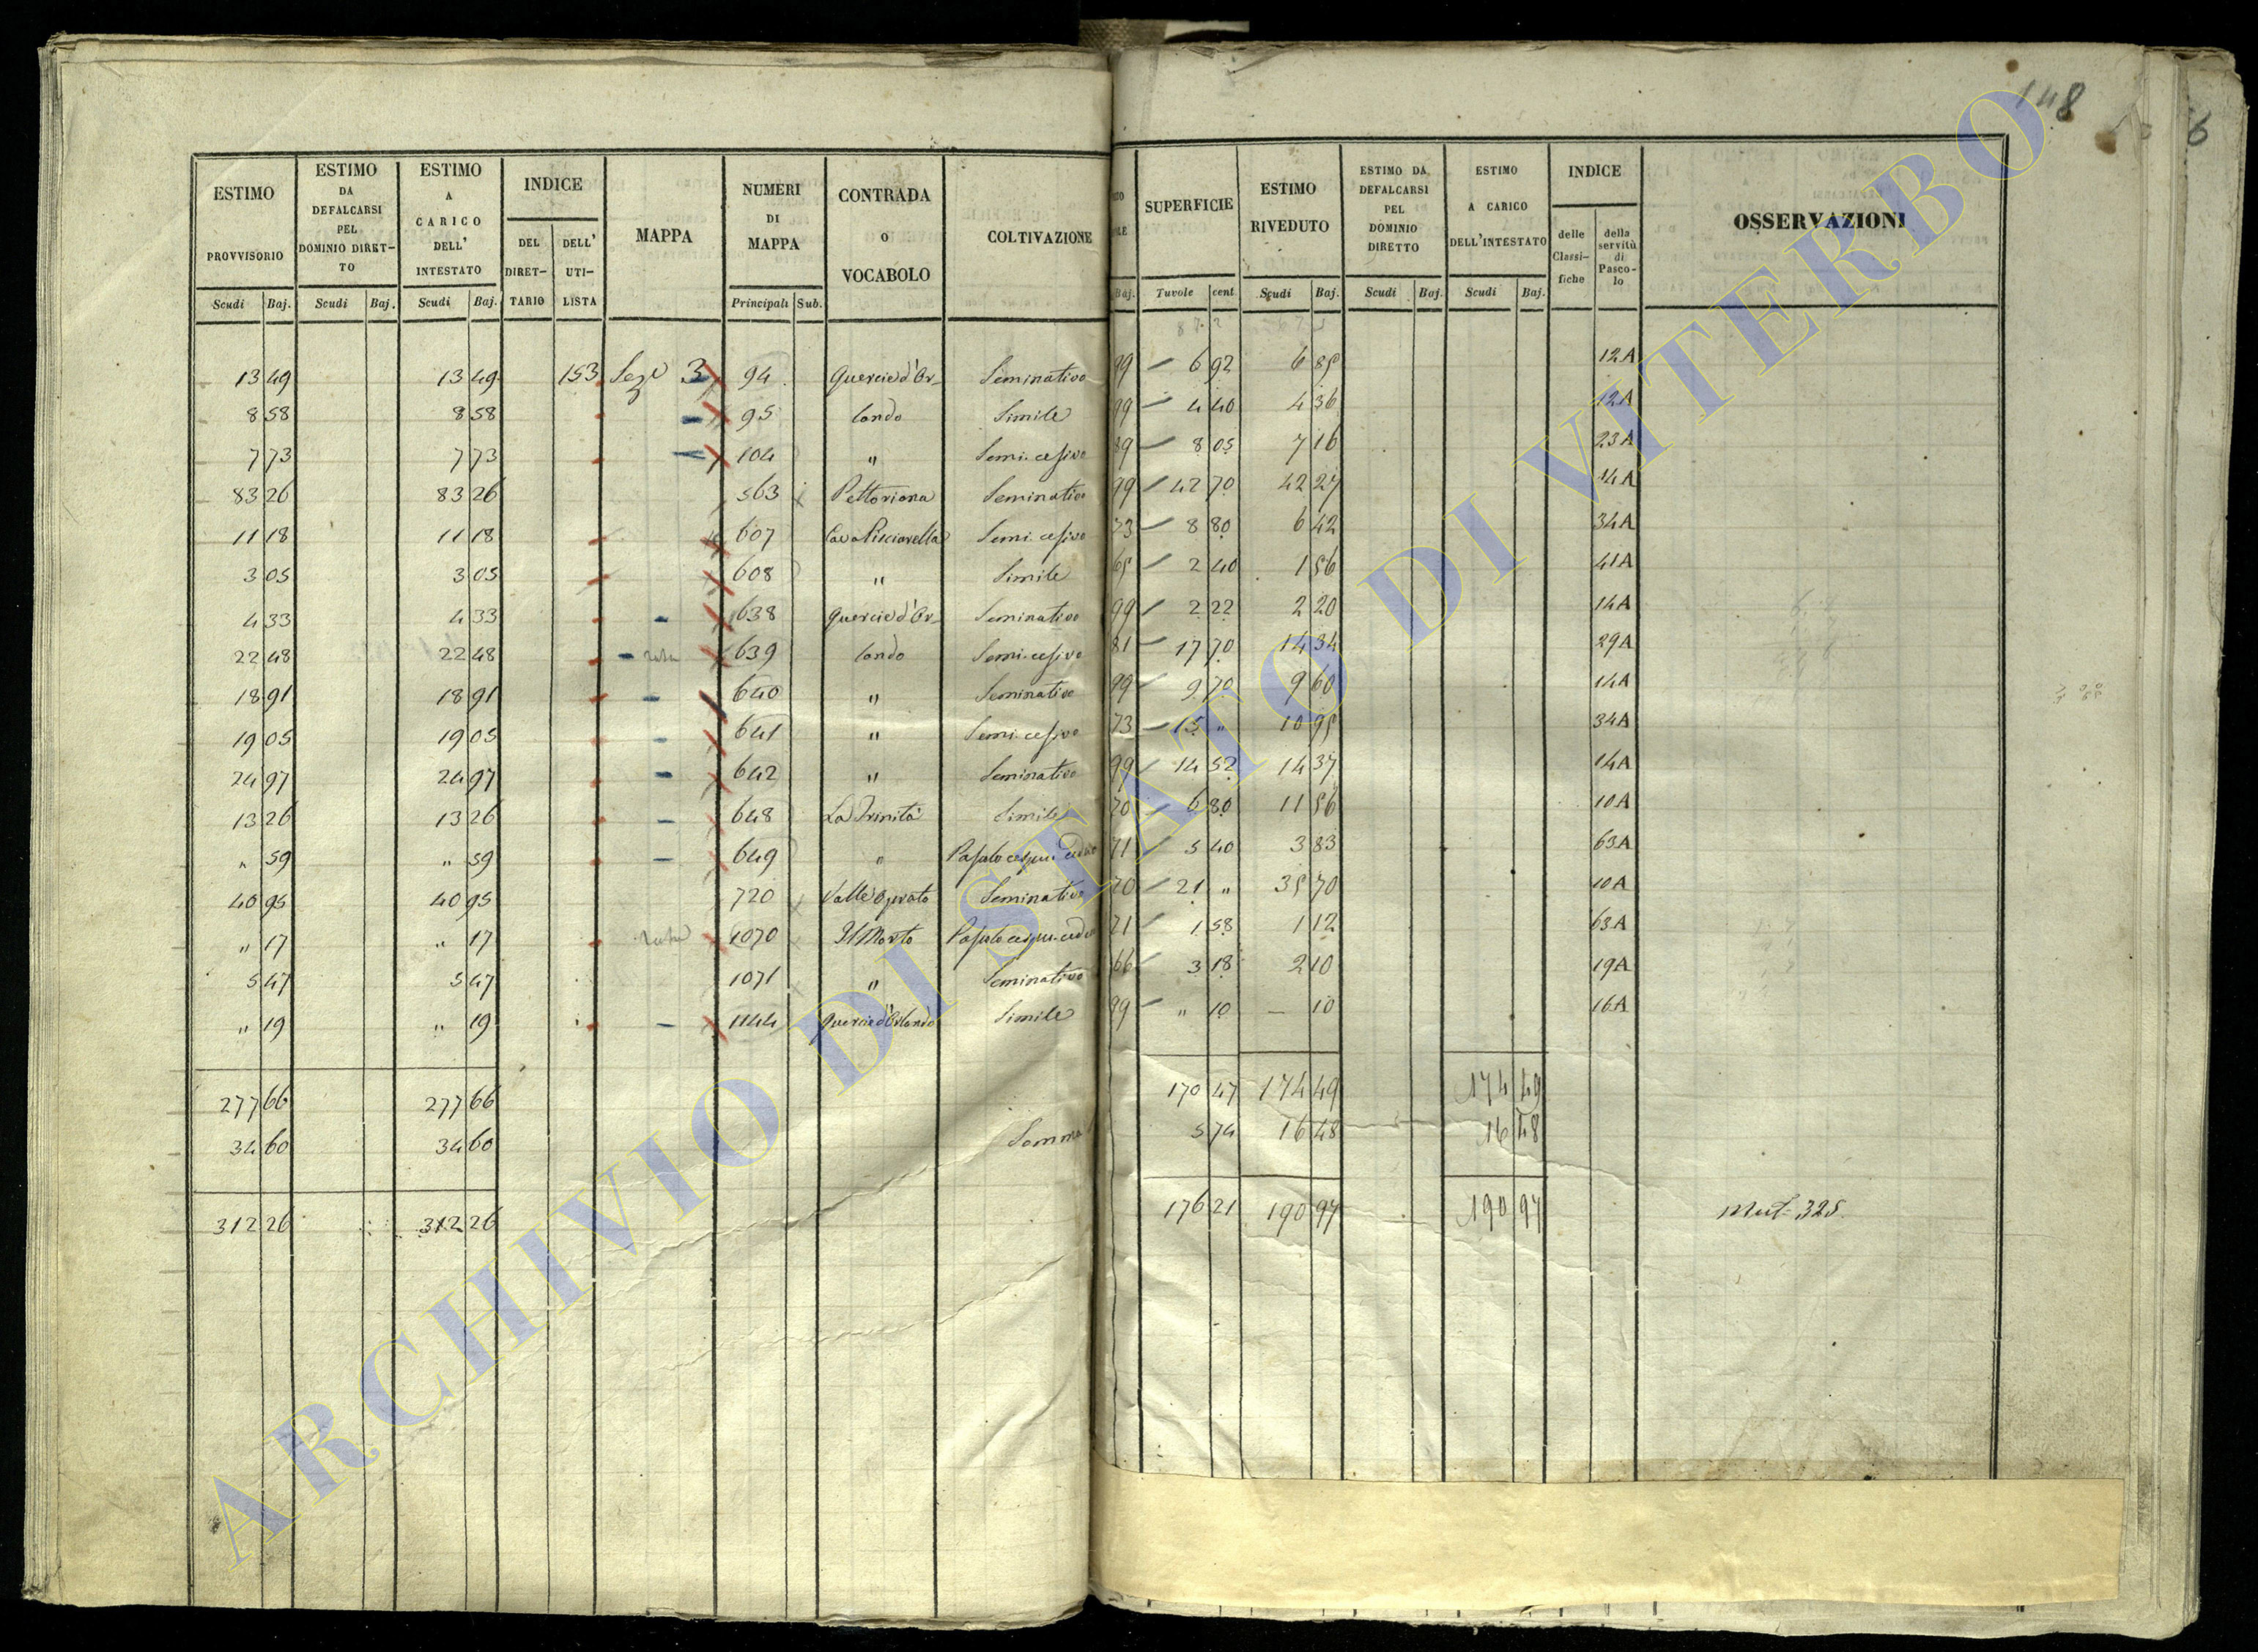 148
6
ESTIMO PROVVISORIO | ESTIMO DA DEFALCARSI PEL DOMINIO DIRETTO | ESTIMO A CARICO DELL' INTESTATO | INDICE | MAPPA | NUMERI DI MAPPA | CONTRADA O VOCABOLO | COLTIVAZIONE
DEL DIRETTARIO | DELL' UTILISTA
Scudi | Baj. | Scudi | Baj. | Scudi | Baj. | Principali | Sub.
13 49 | 13 49 | 153 | Sez 3 | 94 | Quercie d'Or- | Seminativo
8 58 | 8 58 | 95 | lando | Simile
7 73 | 7 73 | 104 | " | Semi. cesivo
83 26 | 83 26 | 563 | Pettoriana | Seminativo
11 18 | 11 18 | 607 | Cava Pisciarella | Semi. cesivo
3 05 | 3 05 | 608 | " | Simile
4 33 | 4 33 | 638 | Quercie d'Or- | Seminativo
22 48 | 22 48 | 639 | lando | Semi. cesivo
18 91 | 18 91 | 640 | " | Seminativo
19 05 | 19 05 | 641 | " | Semi. cesivo
24 97 | 24 97 | 642 | " | Seminativo
13 26 | 13 26 | 648 | La Trinità | Simile
" 59 | " 59 | 649 | "
40 95 | 40 95 | 720 | Valle | Seminativo
" 17 | " 17 | 1070 | Il Morto
5 47 | 5 47 | 1071 | " | Seminativo
" 19 | " 19 | 1144 | Quercie d'Orlando | Simile
277 66 | 277 66
34 60 | 34 60 | Somma
312 26 | 312 26
SUPERFICIE | ESTIMO RIVEDUTO | ESTIMO DA DEFALCARSI PEL DOMINIO DIRETTO | ESTIMO A CARICO DELL'INTESTATO | INDICE | OSSERVAZIONI
delle Classifiche | della servitù di Pascolo
Baj. | Tavole | cent. | Scudi | Baj. | Scudi | Baj. | Scudi | Baj.
99 | 6 92 | 6 85 | 12A
99 | 4 40 | 4 36 | 12A
89 | 8 05 | 7 16 | 23A
99 | 42 70 | 42 27 | 14A
73 | 8 80 | 6 42 | 34A
65 | 2 40 | 1 56 | 41A
99 | 2 22 | 2 20 | 14A
81 | 17 70 | 14 34 | 29A
99 | 9 70 | 9 60 | 14A
73 | 15 " | 10 95 | 34A
99 | 14 52 | 14 37 | 14A
70 | 6 80 | 11 56 | 10A
71 | 5 40 | 3 83 | 63A
70 | 21 " | 35 70 | 10A
71 | 1 58 | 1 12 | 63A
66 | 3 18 | 2 10 | 19A
99 | " 10 | — 10 | 16A
170 47 | 174 49 | 174 49
5 74 | 16 48 | 16 48
176 21 | 190 97 | 190 97 | Mut. 325.
ARCHIVIO DI STATO DI VITERBO